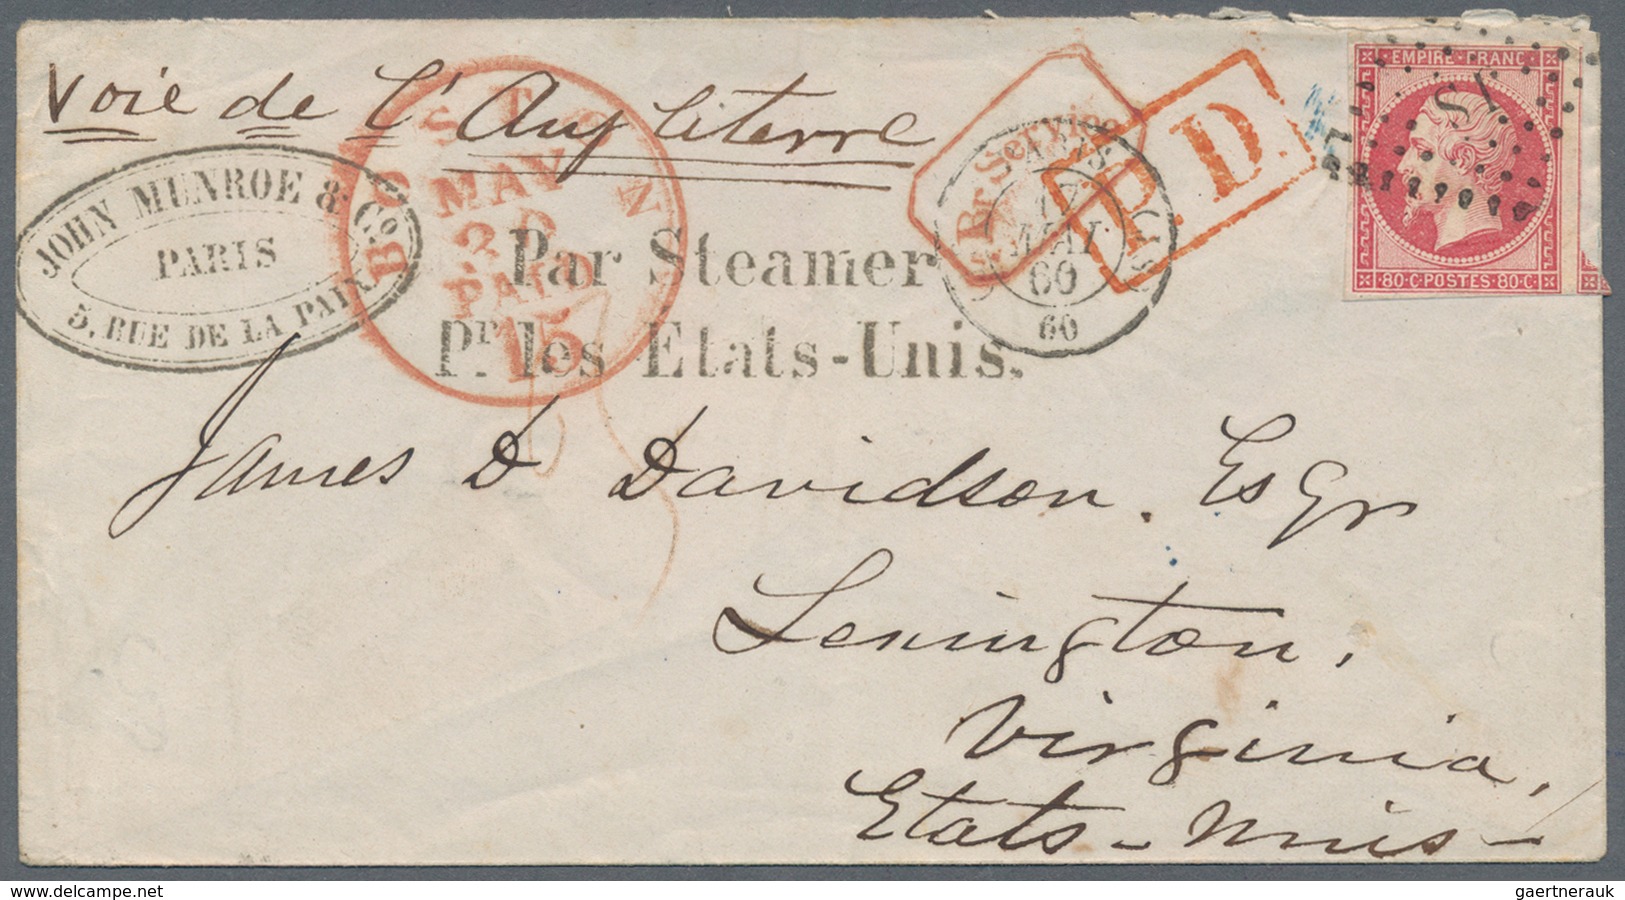 Voie de l'Angleterre
JOHN MUNROE & Co.
PARIS
5, RUE DE LA PAIX.
BOSTON
MAY
PAID
15
Par Steamer
Pr. les Etats-Unis.
Br Service
PARIS
17
MAI
60
60
P.D.
EMPIRE FRANC
80·C·POSTES·80·C
James D Davidson. Esqr
Lexington,
Virginia,
Etats-Unis-
gaertnerauk